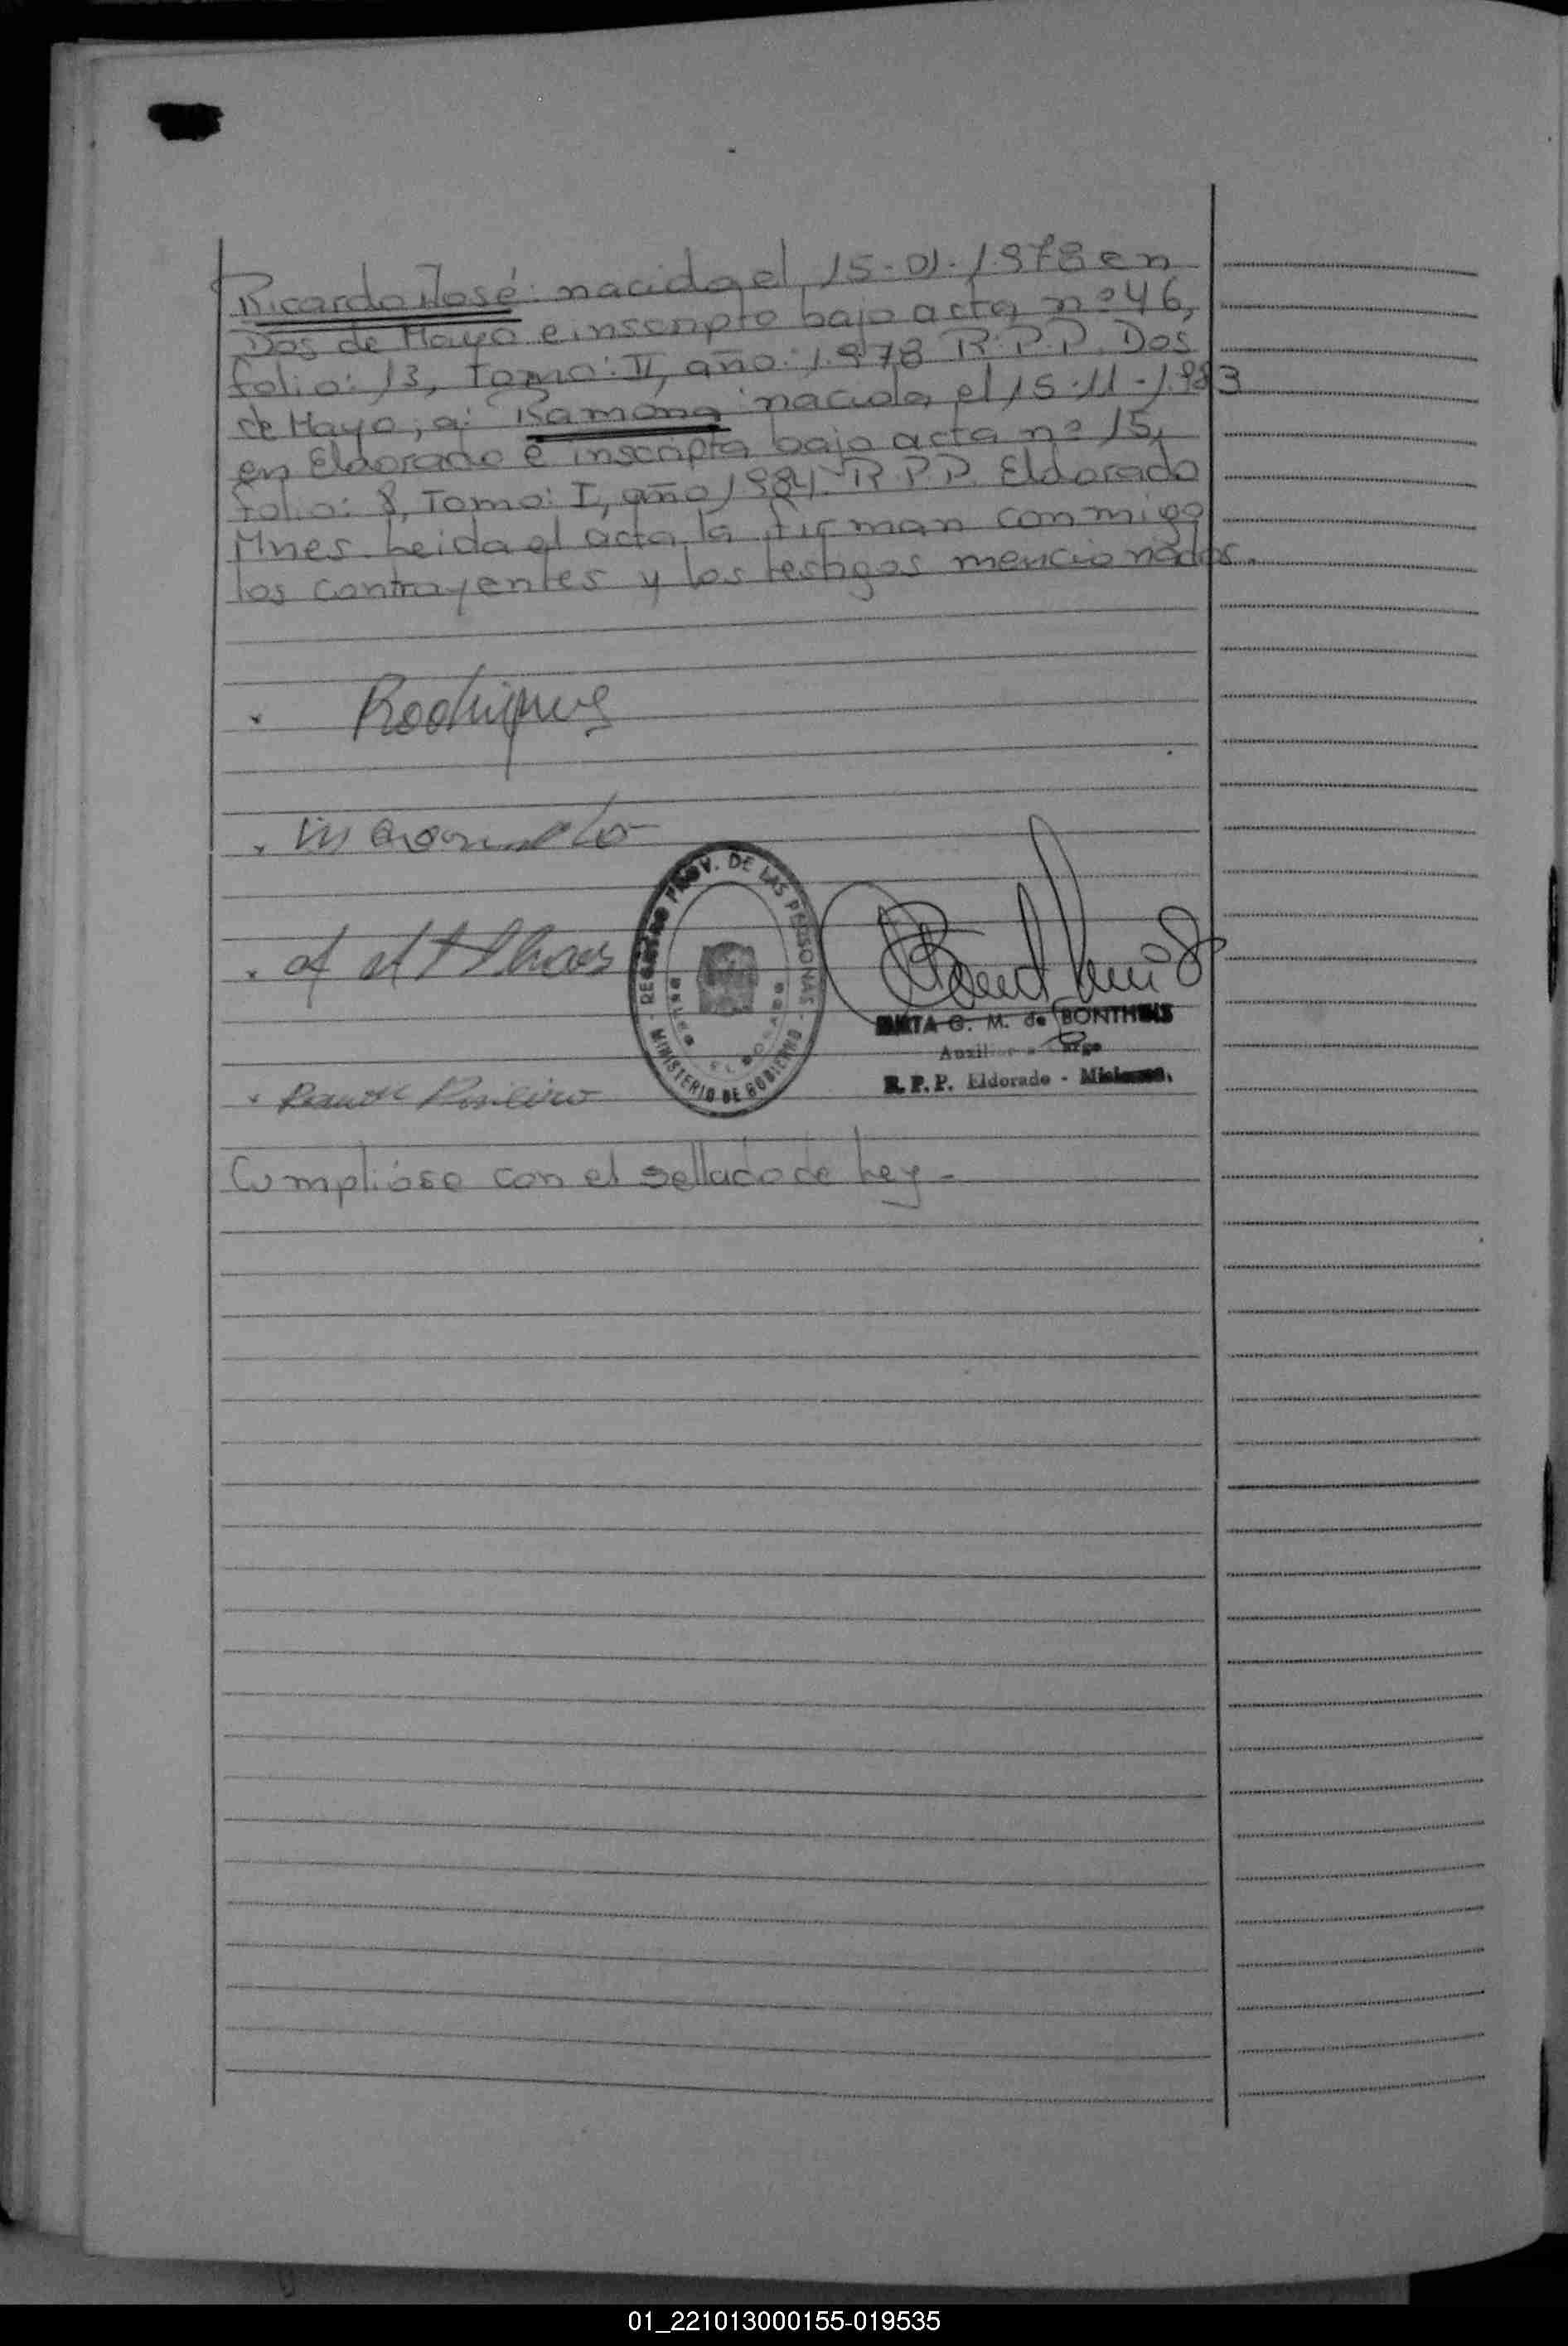 Ricardo José: nacido el 15-01-1978 en
Dos de Mayo e inscripto bajo acta nº 46,
folio: 13, Tomo: II, año: 1978 R.P.P. Dos
de Mayo, a: Ramona nacida el 15-11-1983
en Eldorado e inscripta bajo acta nº 15,
folio: 8, Tomo: I, año 1984 R.P.P. Eldorado
Mnes. Leida el acta, la firman conmigo
los contrayentes y los testigos mencionados.
Rodrigues
REGISTRO PROV. DE LAS PERSONAS
MINISTERIO DE GOBIERNO
G. M. de BONTHEIS
R. P. P. Eldorado - Misiones.
Cumplióse con el sellado de Ley-
01_221013000155-019535